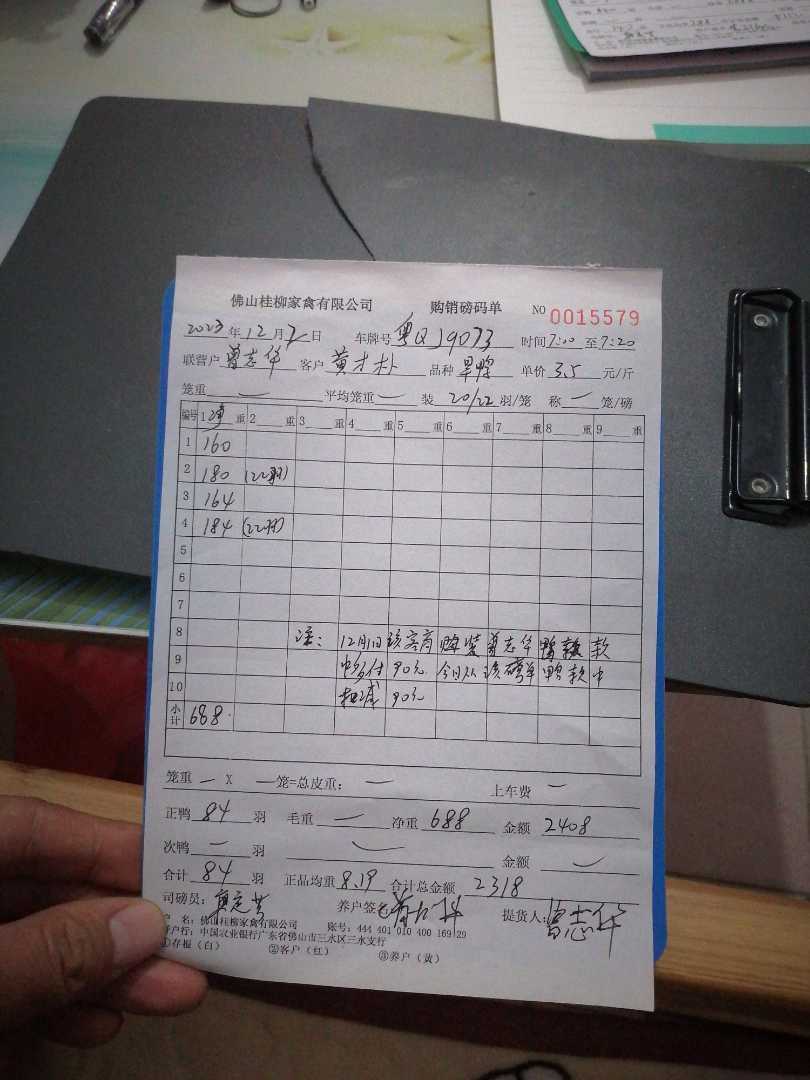 佛山桂柳家禽有限公司 购销磅码单 NO 0015579
2023年12月2日 车牌号 粤QJ9073 时间7:00至7:20
联营户 曾志华 客户 黄才朴 品种 单价 3.5 元/斤
笼重 — 平均笼重 — 装 20/22 羽/笼 称 — 笼/磅
编号 1 净 重 2 重 3 重 4 重 5 重 6 重 7 重 8 重 9 重
1 160
2 180 (22羽)
3 164
4 184 (22羽)
5
6
7
8 注: 12月1日 该客商 购装 曾志华 款
9 中多付 90元. 今日从 该磅单 鸭款中
10 扣减 90元
小计 688.
笼重 — X — 笼=总皮重: — 上车费 —
正鸭 84 羽 毛重 — 净重 688 金额 2408
次鸭 — 羽 — 金额 —
合计 84 羽 正品均重 8.19 合计总金额 2318
司磅员: 养户签名 提货人: 曾志华
户 名: 佛山桂柳家禽有限公司 账号: 444 401 010 400 169 29
开户行: 中国农业银行广东省佛山市三水区三水支行
①存根(白) ②客户(红) ③养户(黄)